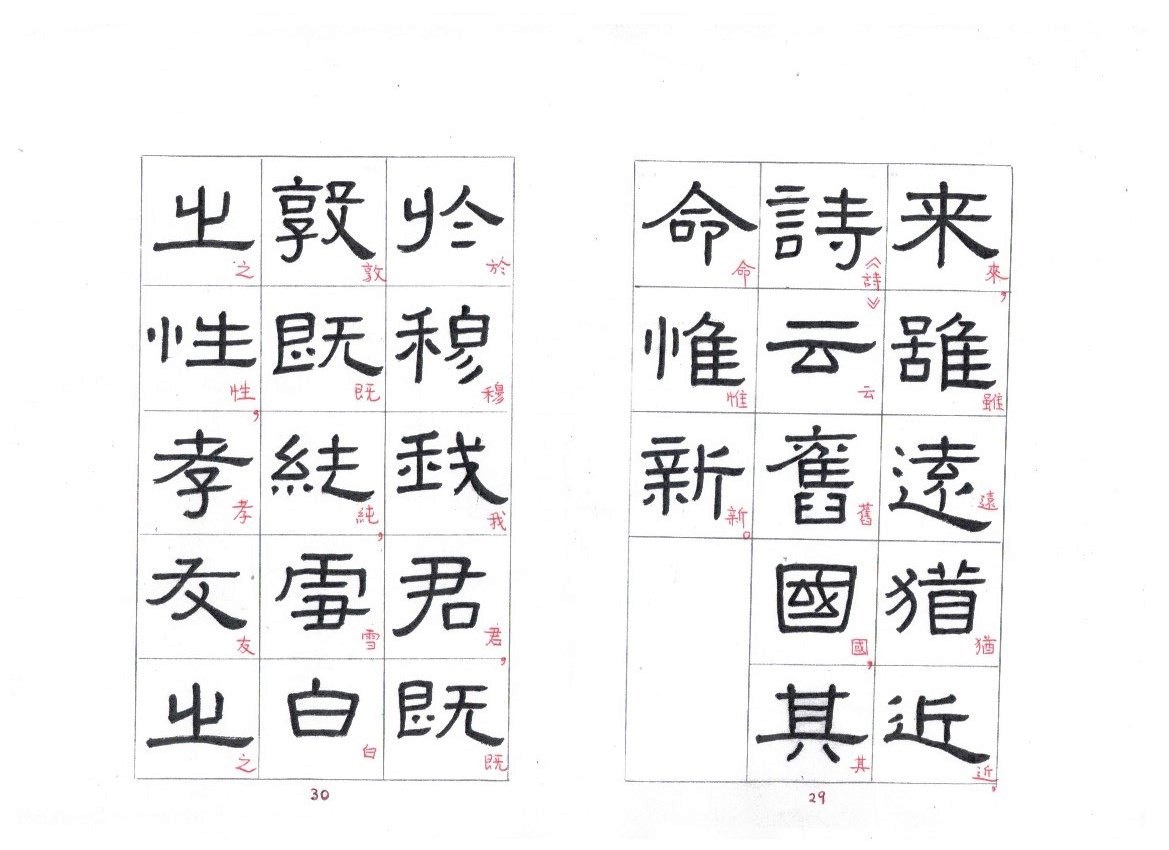 来雖遠猶近
來，雖遠猶近，
詩云舊國其
《詩》云舊國，其
命惟新
命惟新。
29
於穆我君既
於穆我君，既
敦既純雪白
敦既純，雪白
之性孝友之
之性，孝友之
30